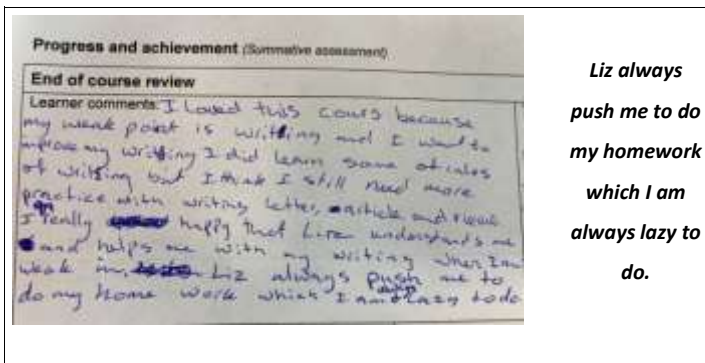 Progress and achievement (Summative assessment)
End of course review
Learner comments: I loved this cours because
my weak point is writting and I want to
improve my writting I did learn some of rules
of writting but I think I still need more
practice with writing letter, article and
I really happy that Liz understands me
and helps me with my writing when I am
weak in, Liz always push me to
do my home work which I am always lazy to do
Liz always
push me to do
my homework
which I am
always lazy to
do.